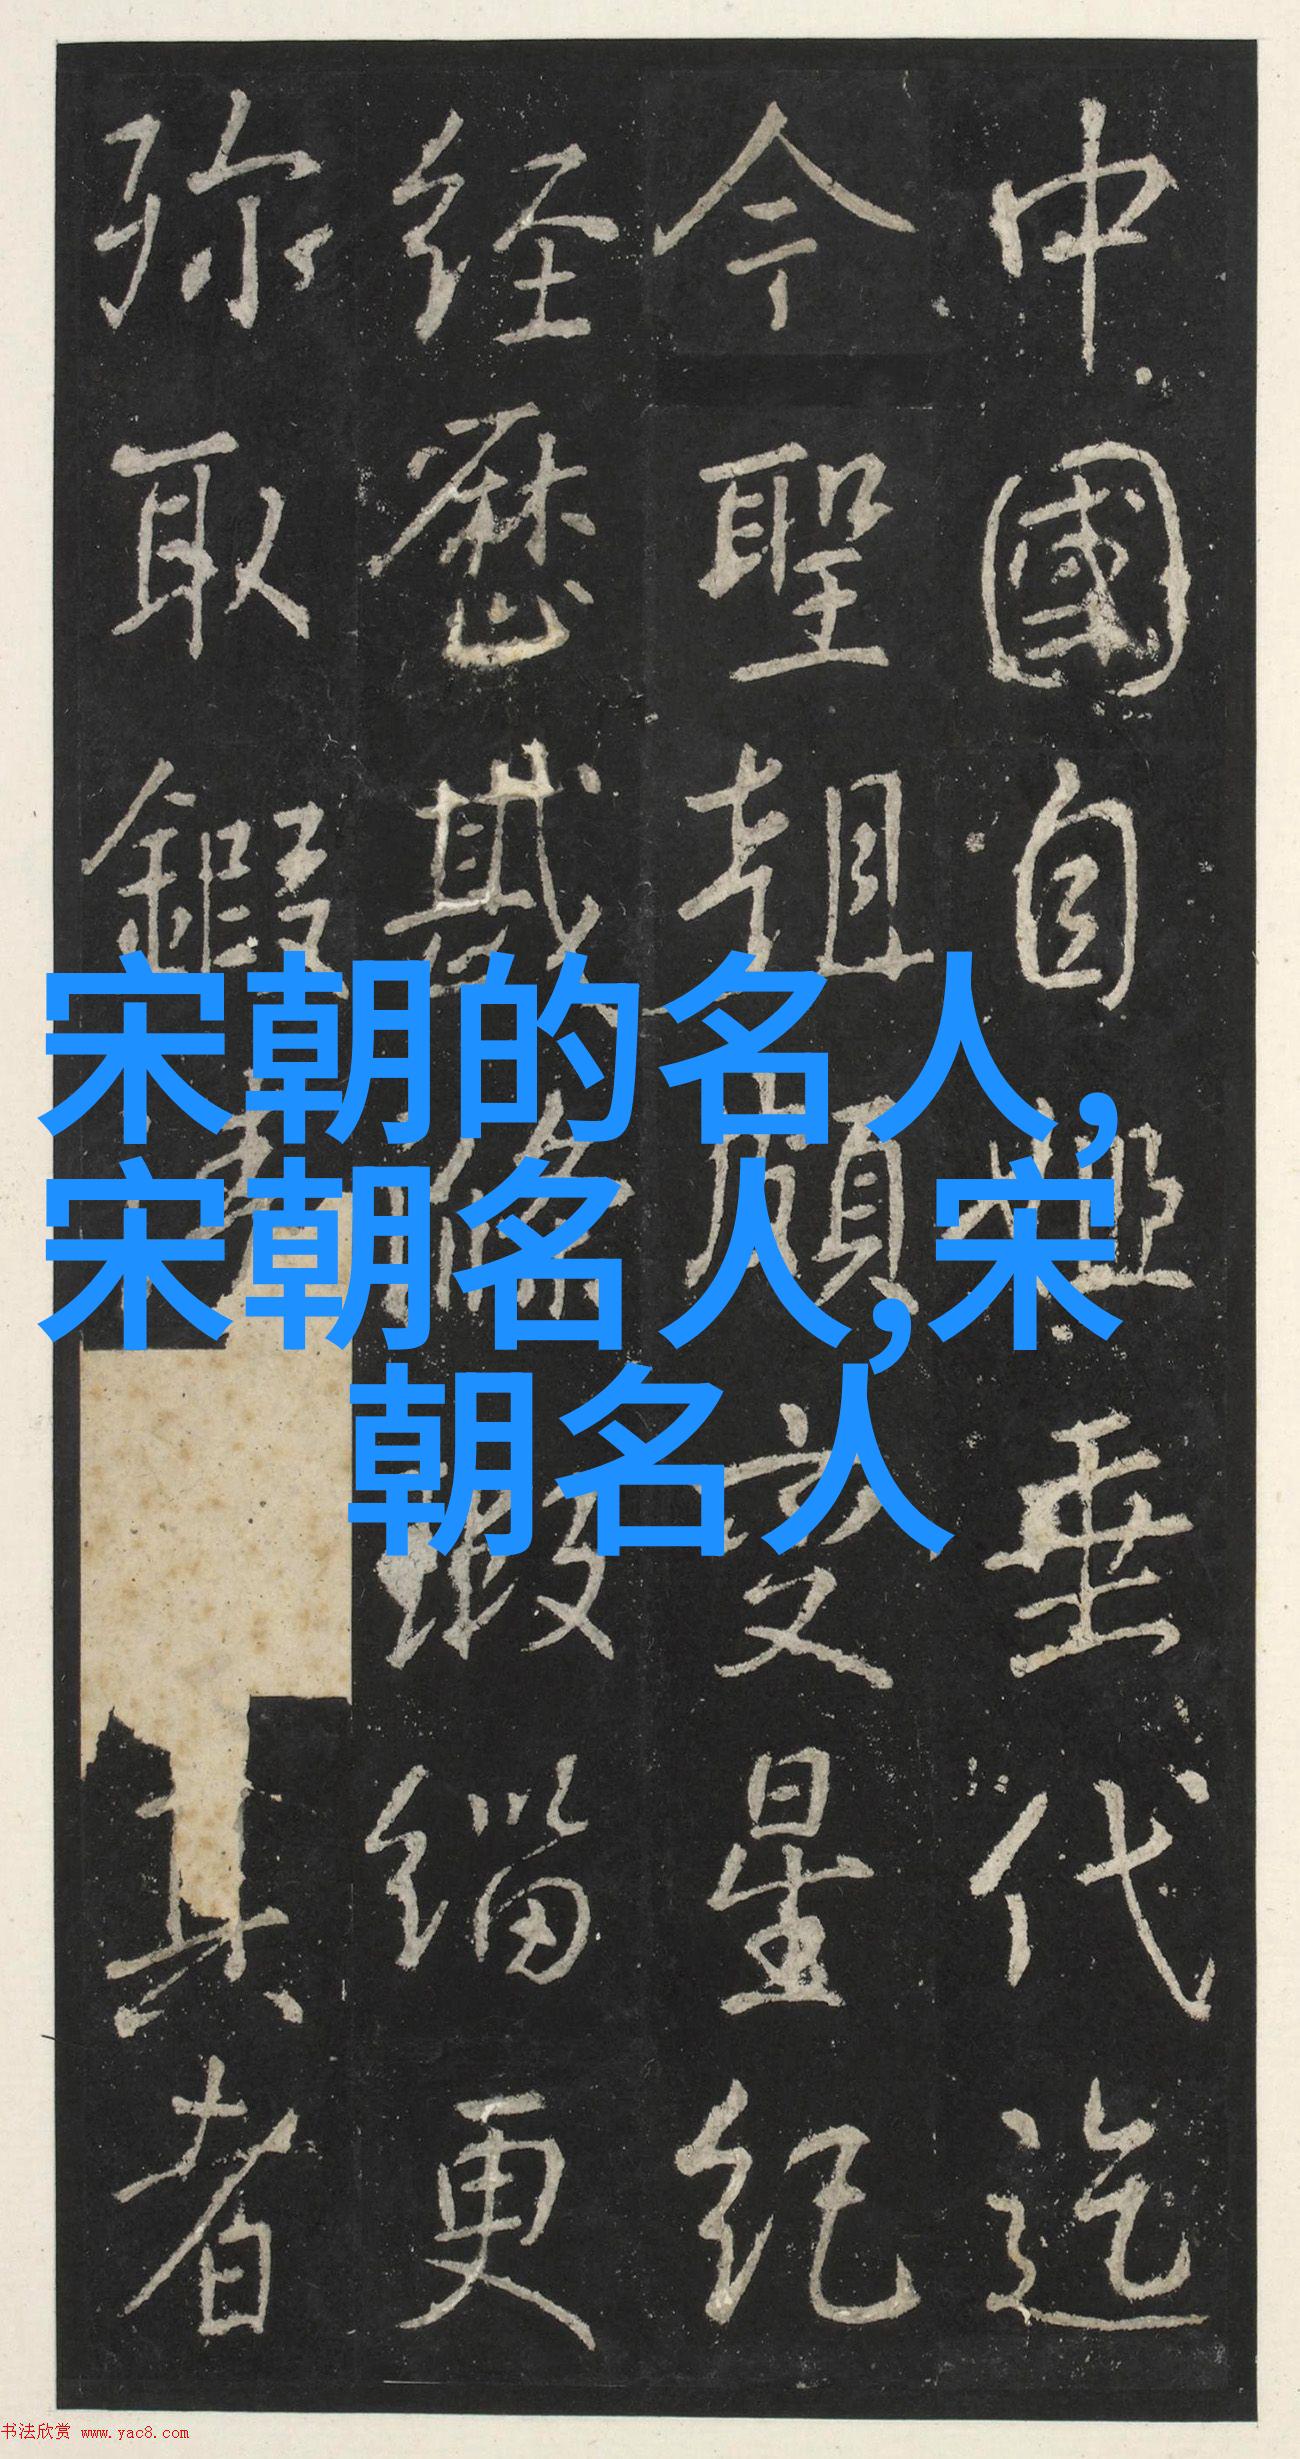 中國自
垂代迄
今聖朝
定星紀
经歷
緇更
弥取鍛
真者
宋朝的名人,
宋朝名人,宋
朝名人
书法欣赏 www.yac8.com